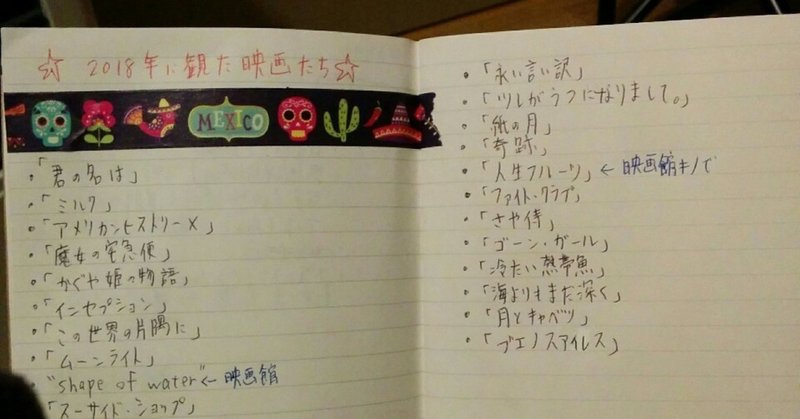 ☆ 2018年に観た映画たち☆
MEXICO
・「君の名は」
・「ミルク」
・「アメリカンヒストリーX」
・「魔女の宅急便」
・「かぐや姫の物語」
・「インセプション」
・「この世界の片隅に」
・「ムーンライト」
・"shape of water"← 映画館
・「スーサイド・ショップ」
・「永い言い訳」
・「ツレがうつになりまして。」
・「紙の月」
・「奇跡」
・「人生フルーツ」← 映画館キノで
・「ファイト・クラブ」
・「さや侍」
・「ゴーン・ガール」
・「冷たい熱帯魚」
・「海よりもまだ深く」
・「月とキャベツ」
・「ブエノスアイレス」